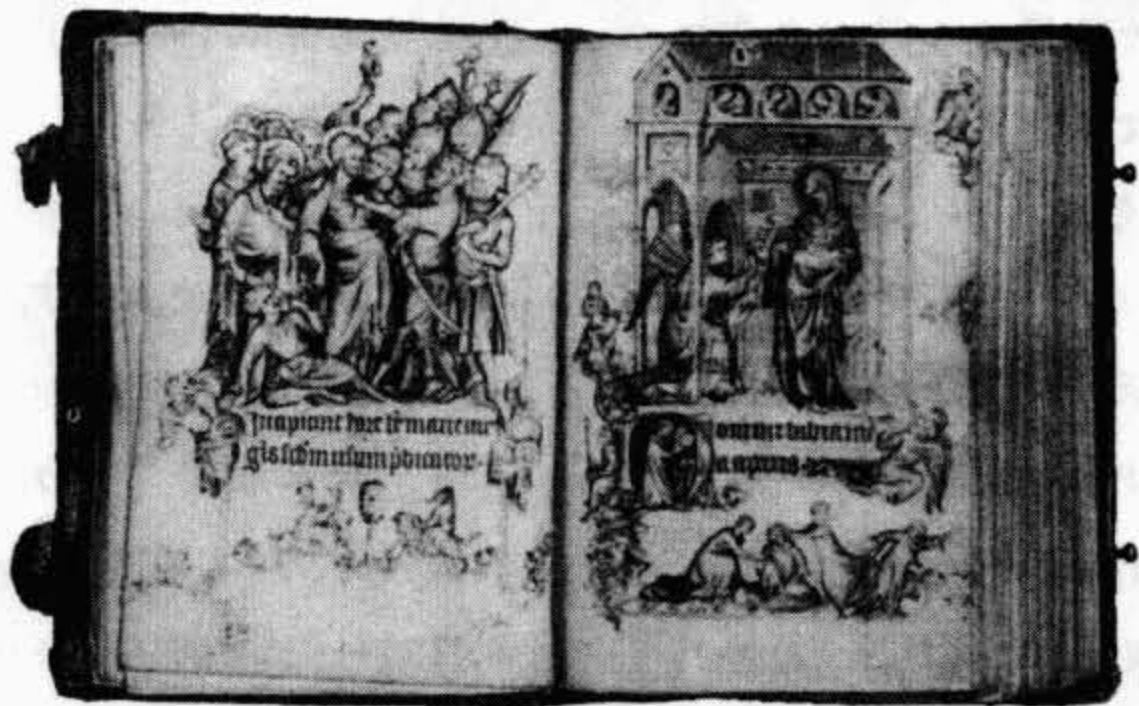 Incipiunt hore marie uir
gis scdm usum pdicator.
Domine labia me
a aperies